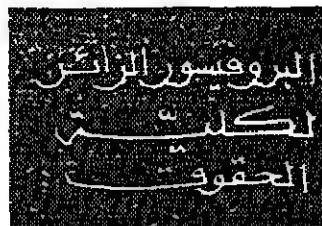 البروفيسور الزائر
لكلية
الحقوق